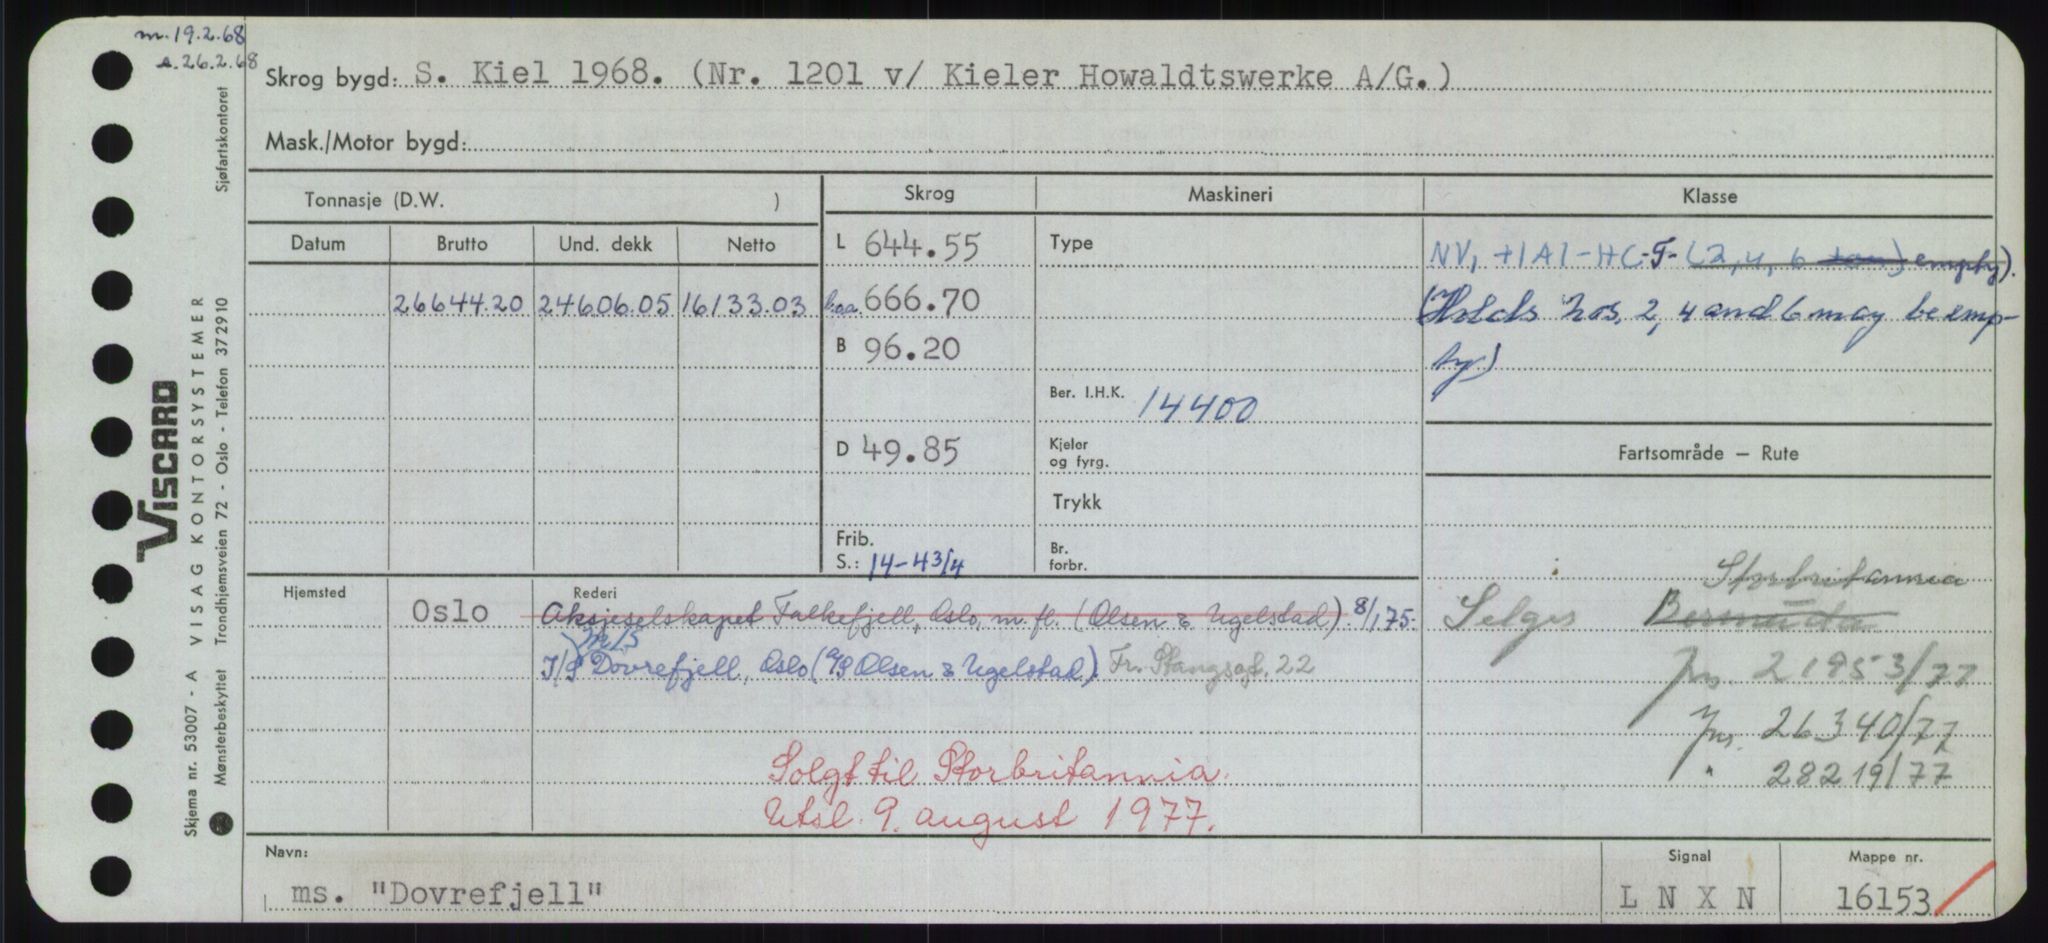 m. 19.2.68
s. 26.2.68
Skrog bygd: S. Kiel 1968. (Nr. 1201 v/ Kieler Howaldtswerke A/G.)
Mask./Motor bygd:
Tonnasje (D.W. )
Skrog
Maskineri
Klasse
Datum Brutto Und. dekk Netto
L 644.55
Type
NV, +1A1-HC-F- (2, 4, 6 empty).
26644.20 24606.05 16133.03
Loa. 666.70
(Holds nos. 2, 4 and 6 may be emp-
B 96.20
ty.)
Ber. I.H.K. 14400
D 49.85
Kjeler
og fyrg.
Fartsområde — Rute
Trykk
Frib.
S.: 14-4 3/4
Br.
forbr.
Hjemsted
Oslo
Rederi
Aksjeselskapet Falkefjell, Oslo, m. fl. (Olsen & Ugelstad) 8/1 75.
M/S
I/S Dovrefjell, Oslo (A/S Olsen & Ugelstad). Fr. Stangsgt. 22
Storbritannia
Selges Bermuda
Jnr. 21953/77
Jnr. 26340/77
" 28219/77
Solgt til Storbritannia.
Utsl. 9. august 1977.
Navn:
ms. "Dovrefjell"
Signal
L N X N
Mappe nr.
16153
Viscard
VISAG KONTORSYSTEMER
Sjøfartskontoret
Trondhjemsveien 72 - Oslo - Telefon 372910
Skjema nr. 53007 - A
Mønsterbeskyttet